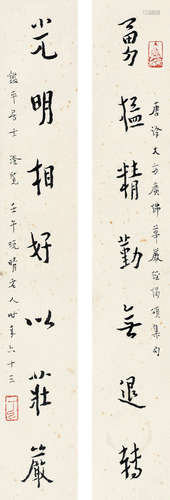 勇猛精勤無退轉
唐譯大方廣佛華嚴經偈頌集句
光明相好以莊嚴
居士 澄覽 壬午晚晴老人時年六十三